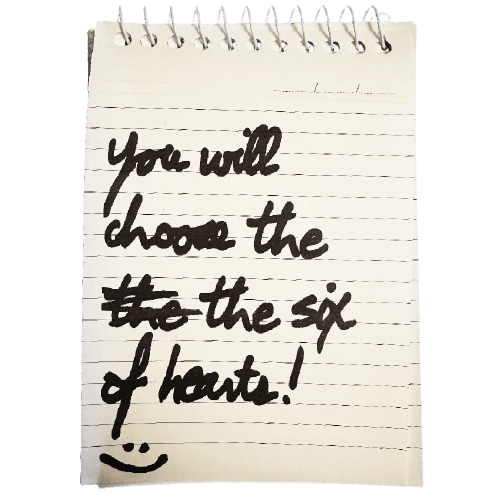 You will
choose the
the the six
of hearts!